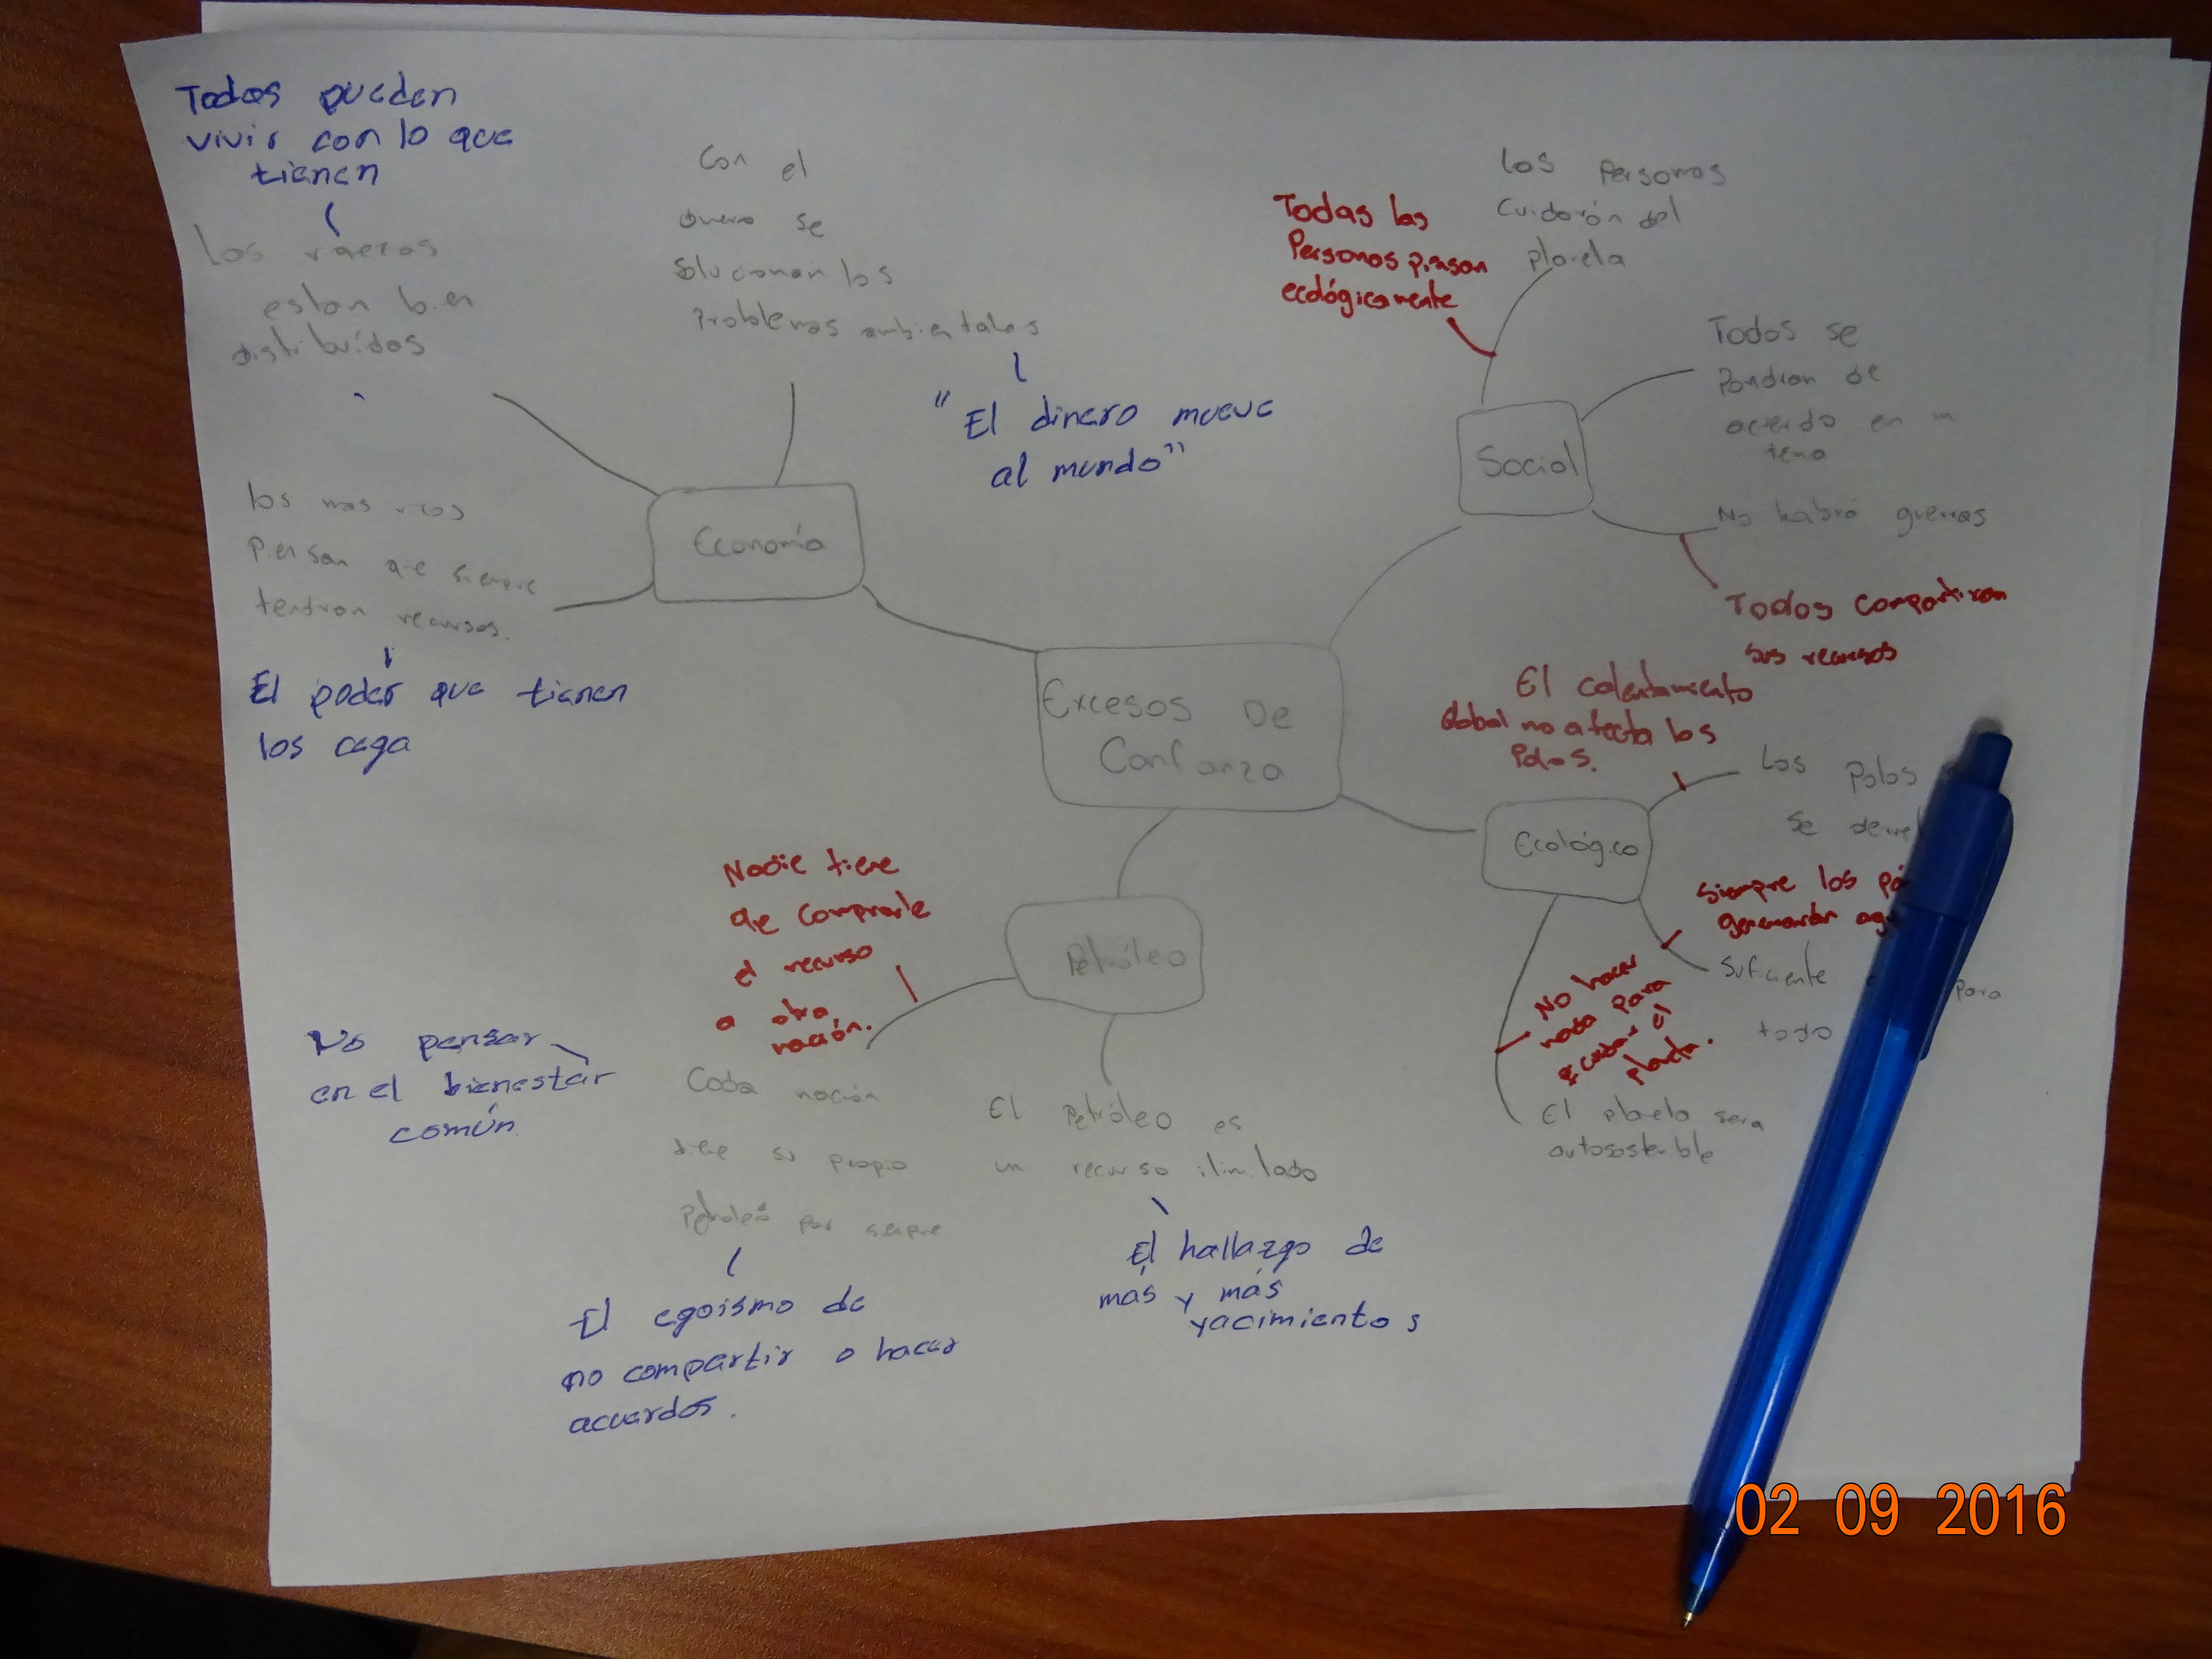 Todos pueden
vivir con lo que
tienen
Los
estan bien
distribuídos
Con el
dinero se
Solucionan los
Problemas ambientales
"El dinero mueve
al mundo"
los mas ricos
Piensan que siempre
tendran recursos.
El poder que tienen
los cega
Economía
Todas las
Personas piensan
ecológicamente
Las Personas
Cuidarón del
planeta
Todos se
Pondran de
acuerdo en un
tema
Social
No habrá guerras
Todos compartiran
sus recursos
Excesos De
Confianza
El calentamiento
Global no afecta los
Polos.
Los Polos
Se
Ecológico
Siempre los
generarán
Suficiente
para
todo
No hacer
nada para
cuidar el
planeta.
El planeta sera
autosostenible
Petróleo
Nadie tiene
que comprarle
el recurso
a otra
nación.
Cada nación
tiene su propio
Petroleo por siempre
No pensar
en el bienestar
común
El egoismo de
no compartir o hacer
acuerdos.
El Petróleo es
un recurso ilimitado
El hallazgo de
más y más
yacimientos
02 09 2016